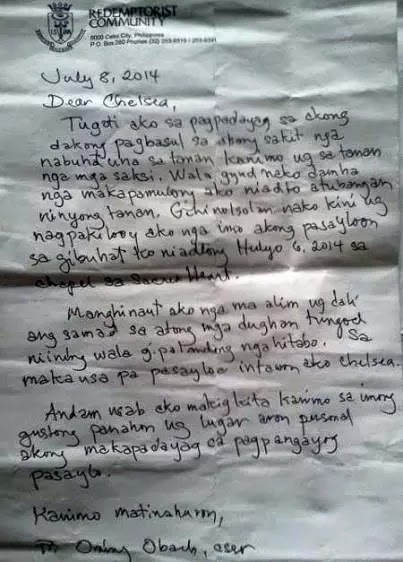 REDEMPTORIST
COMMUNITY
6000 Cebu City, Philippines
P.O. Box 280 Phones (32)
July 8, 2014
Dear Chelsea,
Tugoti ako sa pagpadayag sa akong
dakong pagbasul sa akong sakit nga
nabuhat una sa tanan kanimo ug sa tanan
nga mga saksi. Wala gyud nako damha
nga makapamulong ako niadto atubangan
ninyong tanan. Gihinolsolan nako kini ug
nagpakilooy ako nga imo akong pasayloon
sa gibuhat ko niadtong Hulyo 6, 2014 sa
chapel sa Sacred Heart.
Manghinaut ako nga ma alim ug dali
ang samad sa atong mga dughan tungod sa
niining wala gipalandong nga hitabo.
maka usa pa pasaylo intawn ako Chelsea.
Andam usab ako makigkita kanimo sa imong
gustong panahon ug lugar aron personal
akong makapadayag sa pagpangayo
pasaylo.
Kanimo matinahuron,
Obach, cssr